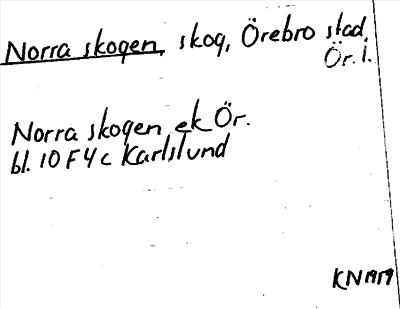 Norra skogen, skog, Örebro stad.
Ör. l.
Norra skogen ek Ör.
bl. 10 F 4 c Karlslund
KN 1979